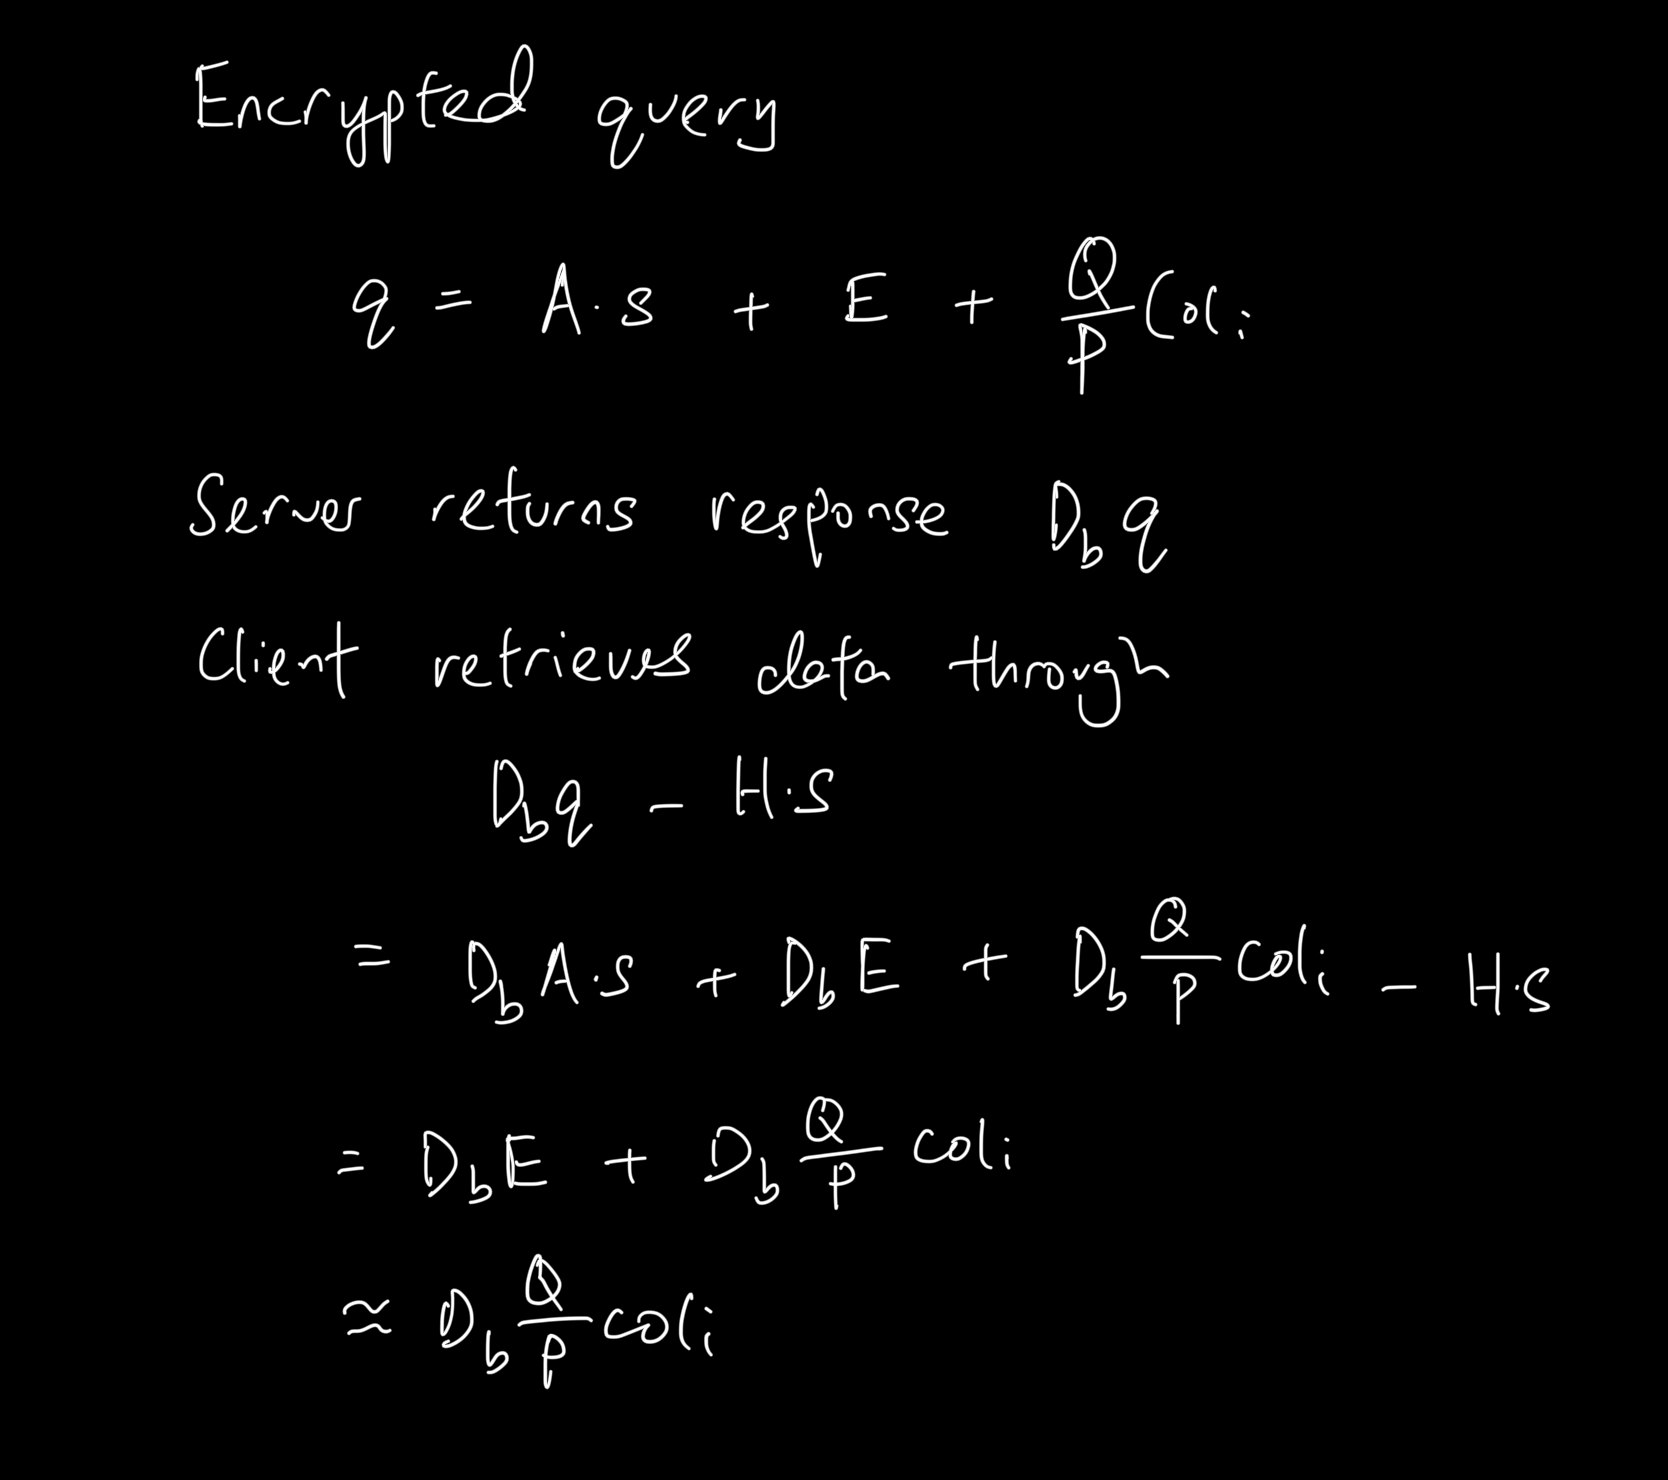 Encrypted query
q = A·s + E + Q/P Col i
Server returns response D_b q
Client retrieves data through
D_b q - H·s
= D_b A·s + D_b E + D_b Q/P col i - H·s
= D_b E + D_b Q/P col i
≈ D_b Q/P col i